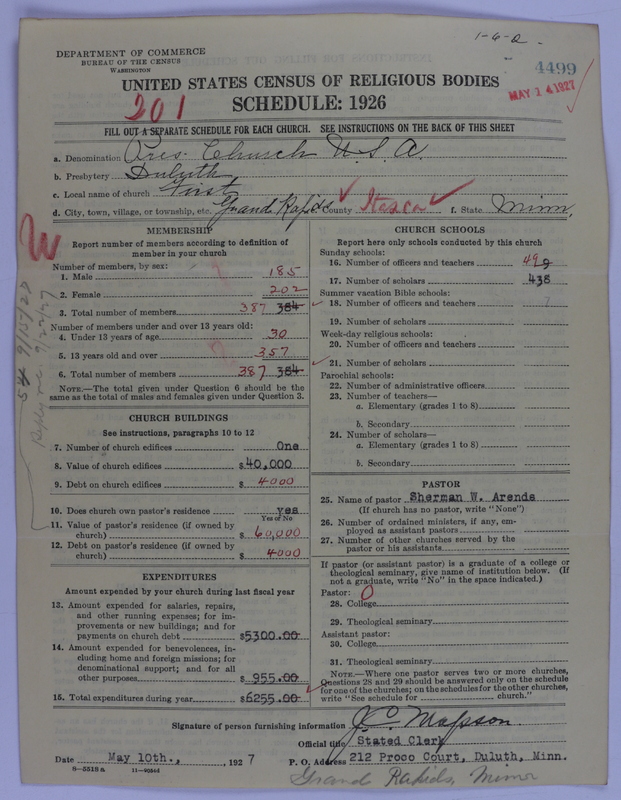 1-6-a-
DEPARTMENT OF COMMERCE
BUREAU OF THE CENSUS
WASHINGTON
4499
MAY 14 1927
UNITED STATES CENSUS OF RELIGIOUS BODIES
201
SCHEDULE: 1926
FILL OUT A SEPARATE SCHEDULE FOR EACH CHURCH. SEE INSTRUCTIONS ON THE BACK OF THIS SHEET
a. Denomination Pres. Church U.S.A.
b. Presbytery Duluth
c. Local name of church First
d. City, town, village, or township, etc. Grand Rapids County Itasca f. State Minn.
MEMBERSHIP
Report number of members according to definition of member in your church
Number of members, by sex:
1. Male 185
2. Female 202
3. Total number of members 387 384
Number of members under and over 13 years old:
4. Under 13 years of age 30
5. 13 years old and over 357
6. Total number of members 387 384
NOTE.—The total given under Question 6 should be the same as the total of males and females given under Question 3.
CHURCH BUILDINGS
See instructions, paragraphs 10 to 12
7. Number of church edifices One
8. Value of church edifices $40,000
9. Debt on church edifices $ 4000
10. Does church own pastor's residence yes
Yes or No
11. Value of pastor's residence (if owned by church) $ 60,000
12. Debt on pastor's residence (if owned by church) $ 4000
EXPENDITURES
Amount expended by your church during last fiscal year
13. Amount expended for salaries, repairs, and other running expenses; for improvements or new buildings; and for payments on church debt $5300.00
14. Amount expended for benevolences, including home and foreign missions; for denominational support; and for all other purposes $ 955.00
15. Total expenditures during year $6255.00
CHURCH SCHOOLS
Report here only schools conducted by this church
Sunday schools:
16. Number of officers and teachers 49
17. Number of scholars 438
Summer vacation Bible schools:
18. Number of officers and teachers 7
19. Number of scholars
Week-day religious schools:
20. Number of officers and teachers
21. Number of scholars
Parochial schools:
22. Number of administrative officers
23. Number of teachers—
a. Elementary (grades 1 to 8)
b. Secondary
24. Number of scholars—
a. Elementary (grades 1 to 8)
b. Secondary
PASTOR
25. Name of pastor Sherman W. Arends
(If church has no pastor, write "None")
26. Number of ordained ministers, if any, employed as assistant pastors
27. Number of other churches served by the pastor or his assistants
If pastor (or assistant pastor) is a graduate of a college or theological seminary, give name of institution below. (If not a graduate, write "No" in the space indicated.)
Pastor: O
28. College
29. Theological seminary
Assistant pastor:
30. College
31. Theological seminary
NOTE.—Where one pastor serves two or more churches, Questions 28 and 29 should be answered only on the schedule for one of the churches; on the schedules for the other churches, write "See schedule for church."
Signature of person furnishing information
Official title Stated Clerk
Date May 10th., 1927 P. O. Address 212 Proco Court, Duluth, Minn.
8—5518a 11—90504
Grand Rapids, Minn